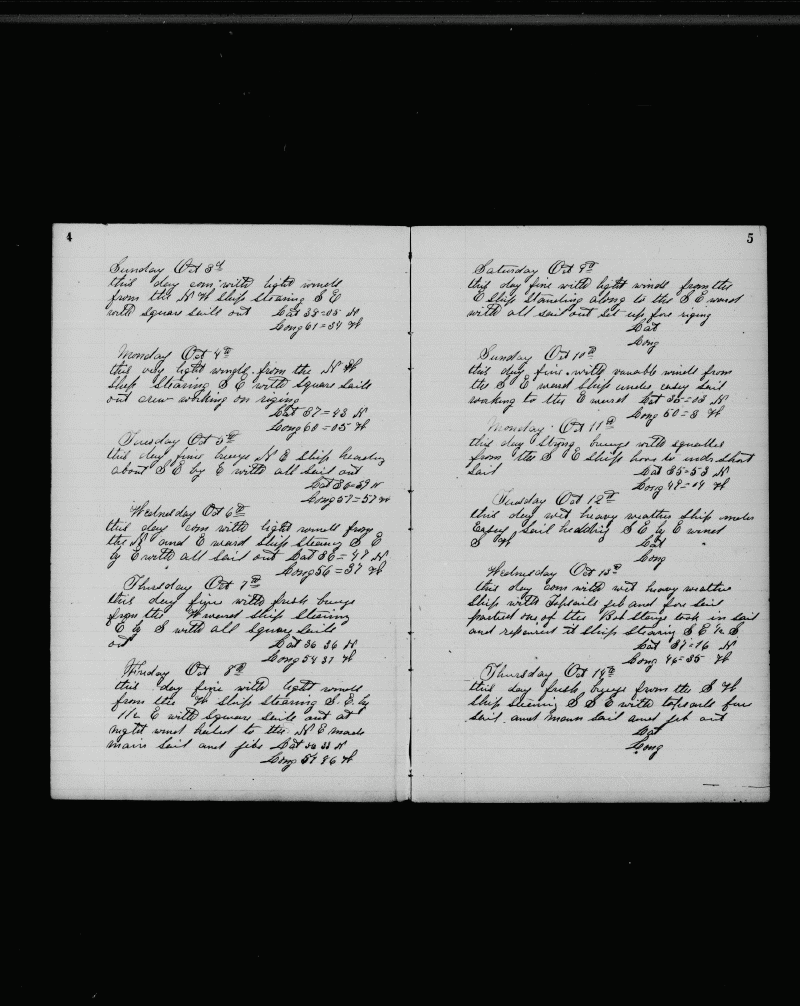 4
Sunday Oct 3d
this day com with light winds
from the N W Ship Stearing S E
with Square Sails out Lat 38=05 N
Long 61=34 W
Monday Oct 4th
this day light winds from the N W
Ship Stearing S E with Square Sails
out crew working on riging
Lat 37=43 N
Long 60=05 W
Tuesday Oct 5th
this day fine breeze N E Ship heading
about S E by E with all Sail out
Lat 36=59 N
Long 57=57 W
Wednesday Oct 6th
this day com with light winds from
the N and E ward Ship Stearing S E
by E with all Sail out Lat 36=47 N
Long 56=37 W
Thursday Oct 7th
this day fine with fresh breeze
from the W ward Ship Stearing
E by S with all Square Sails
out Lat 36 36 N
Long 54 31 W
Friday Oct 8th
this day fine with light winds
from the W Ship Stearing S. E. by
1/2 E with Square Sails out at
night wind hailed to the N E made
main Sail and jibs Lat N
Long W
5
Saturday Oct 9th
this day fine with light winds from the
E Ship Standing along to the S E ward
with all sail out Set up fore riging
Lat
Long
Sunday Oct 10th
this day fine with variable winds from
the S E ward Ship under easy Sail
working to the E ward Lat 35=03 N
Long 50=8 W
Monday Oct 11th
this day Stong breeze with squalls
from the S E Ship hove to undr Short
Sail Lat 35=53 N
Long 49=04 W
Tuesday Oct 12th
this day wet heavy weather Ship under
Easey Sail heading S E by E wind
S W Lat
Long
Wednesday Oct 13th
this day com with wet heavy weather
Ship with topsails jib and fore Sail
parted one of the Bob Stays took in Sail
and repaired it Ship Stearing S E 1/2 S
Lat 37=16 N
Long 46=35 W
Thursday Oct 14th
this day fresh breeze from the S W
Ship Stearing S S E with topsails fore
Sail and main Sail and jib out
Lat
Long